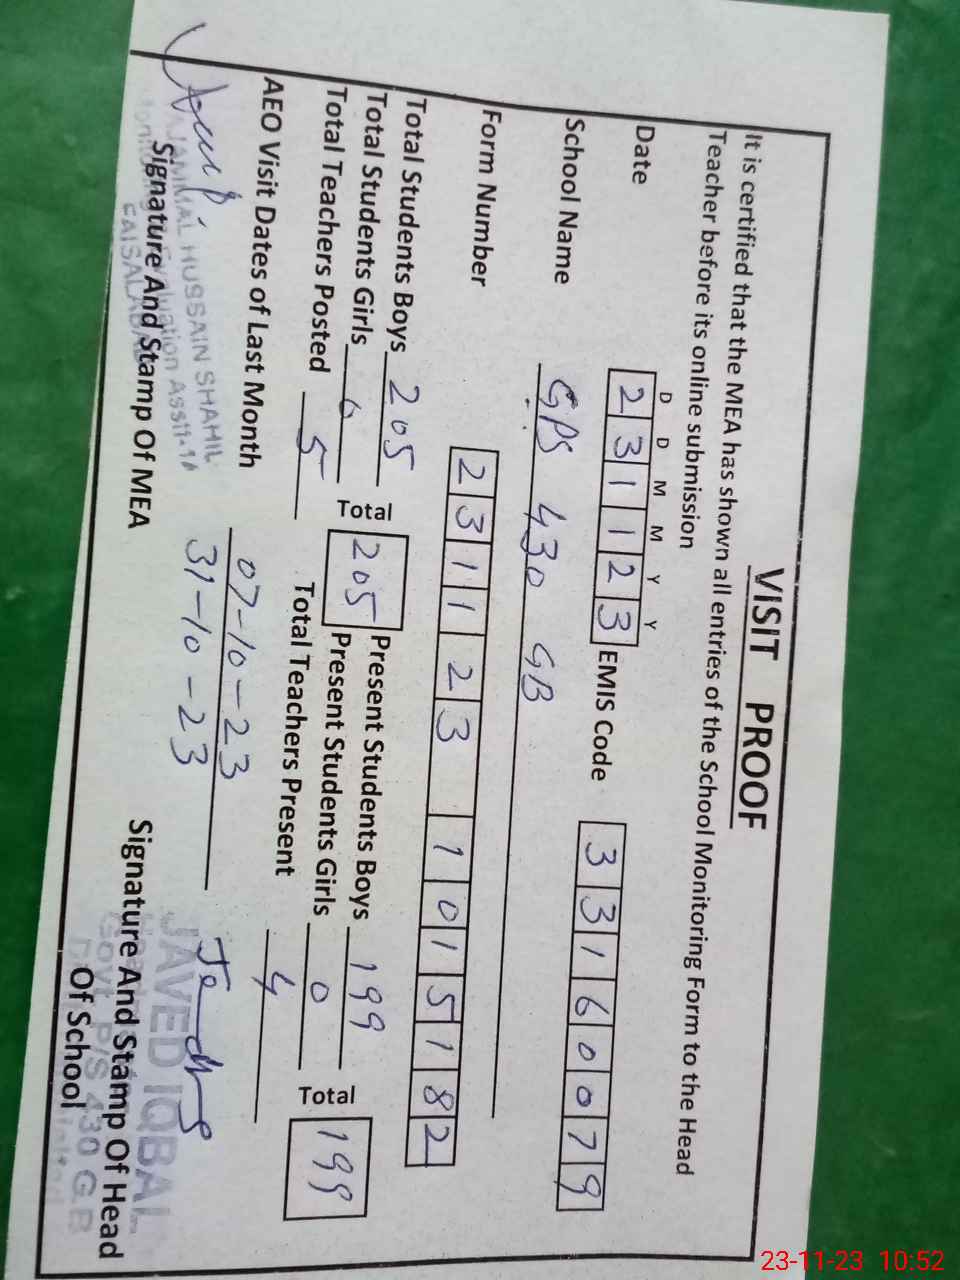 VISIT PROOF
It is certified that the MEA has shown all entries of the School Monitoring Form to the Head
Teacher before its online submission
D D M M Y Y
Date 2 3 1 1 2 3 EMIS Code 3 3 1 6 0 0 7 9
School Name GPS 430 GB
Form Number 2 3 1 1 2 3 1 0 1 5 1 8 2
Total Students Boys 205 Total 205 Present Students Boys 199 Total 199
Total Students Girls 0 Present Students Girls 0
Total Teachers Posted 5 Total Teachers Present 4
AEO Visit Dates of Last Month 07-10-23
31-10-23
HUSSAIN SHAHIL
FAISALABAD
Signature And Stamp Of MEA
JAVED IQBAL
Govt. P/S 430 GB
Signature And Stamp Of Head
Of School
23-11-23 10:52